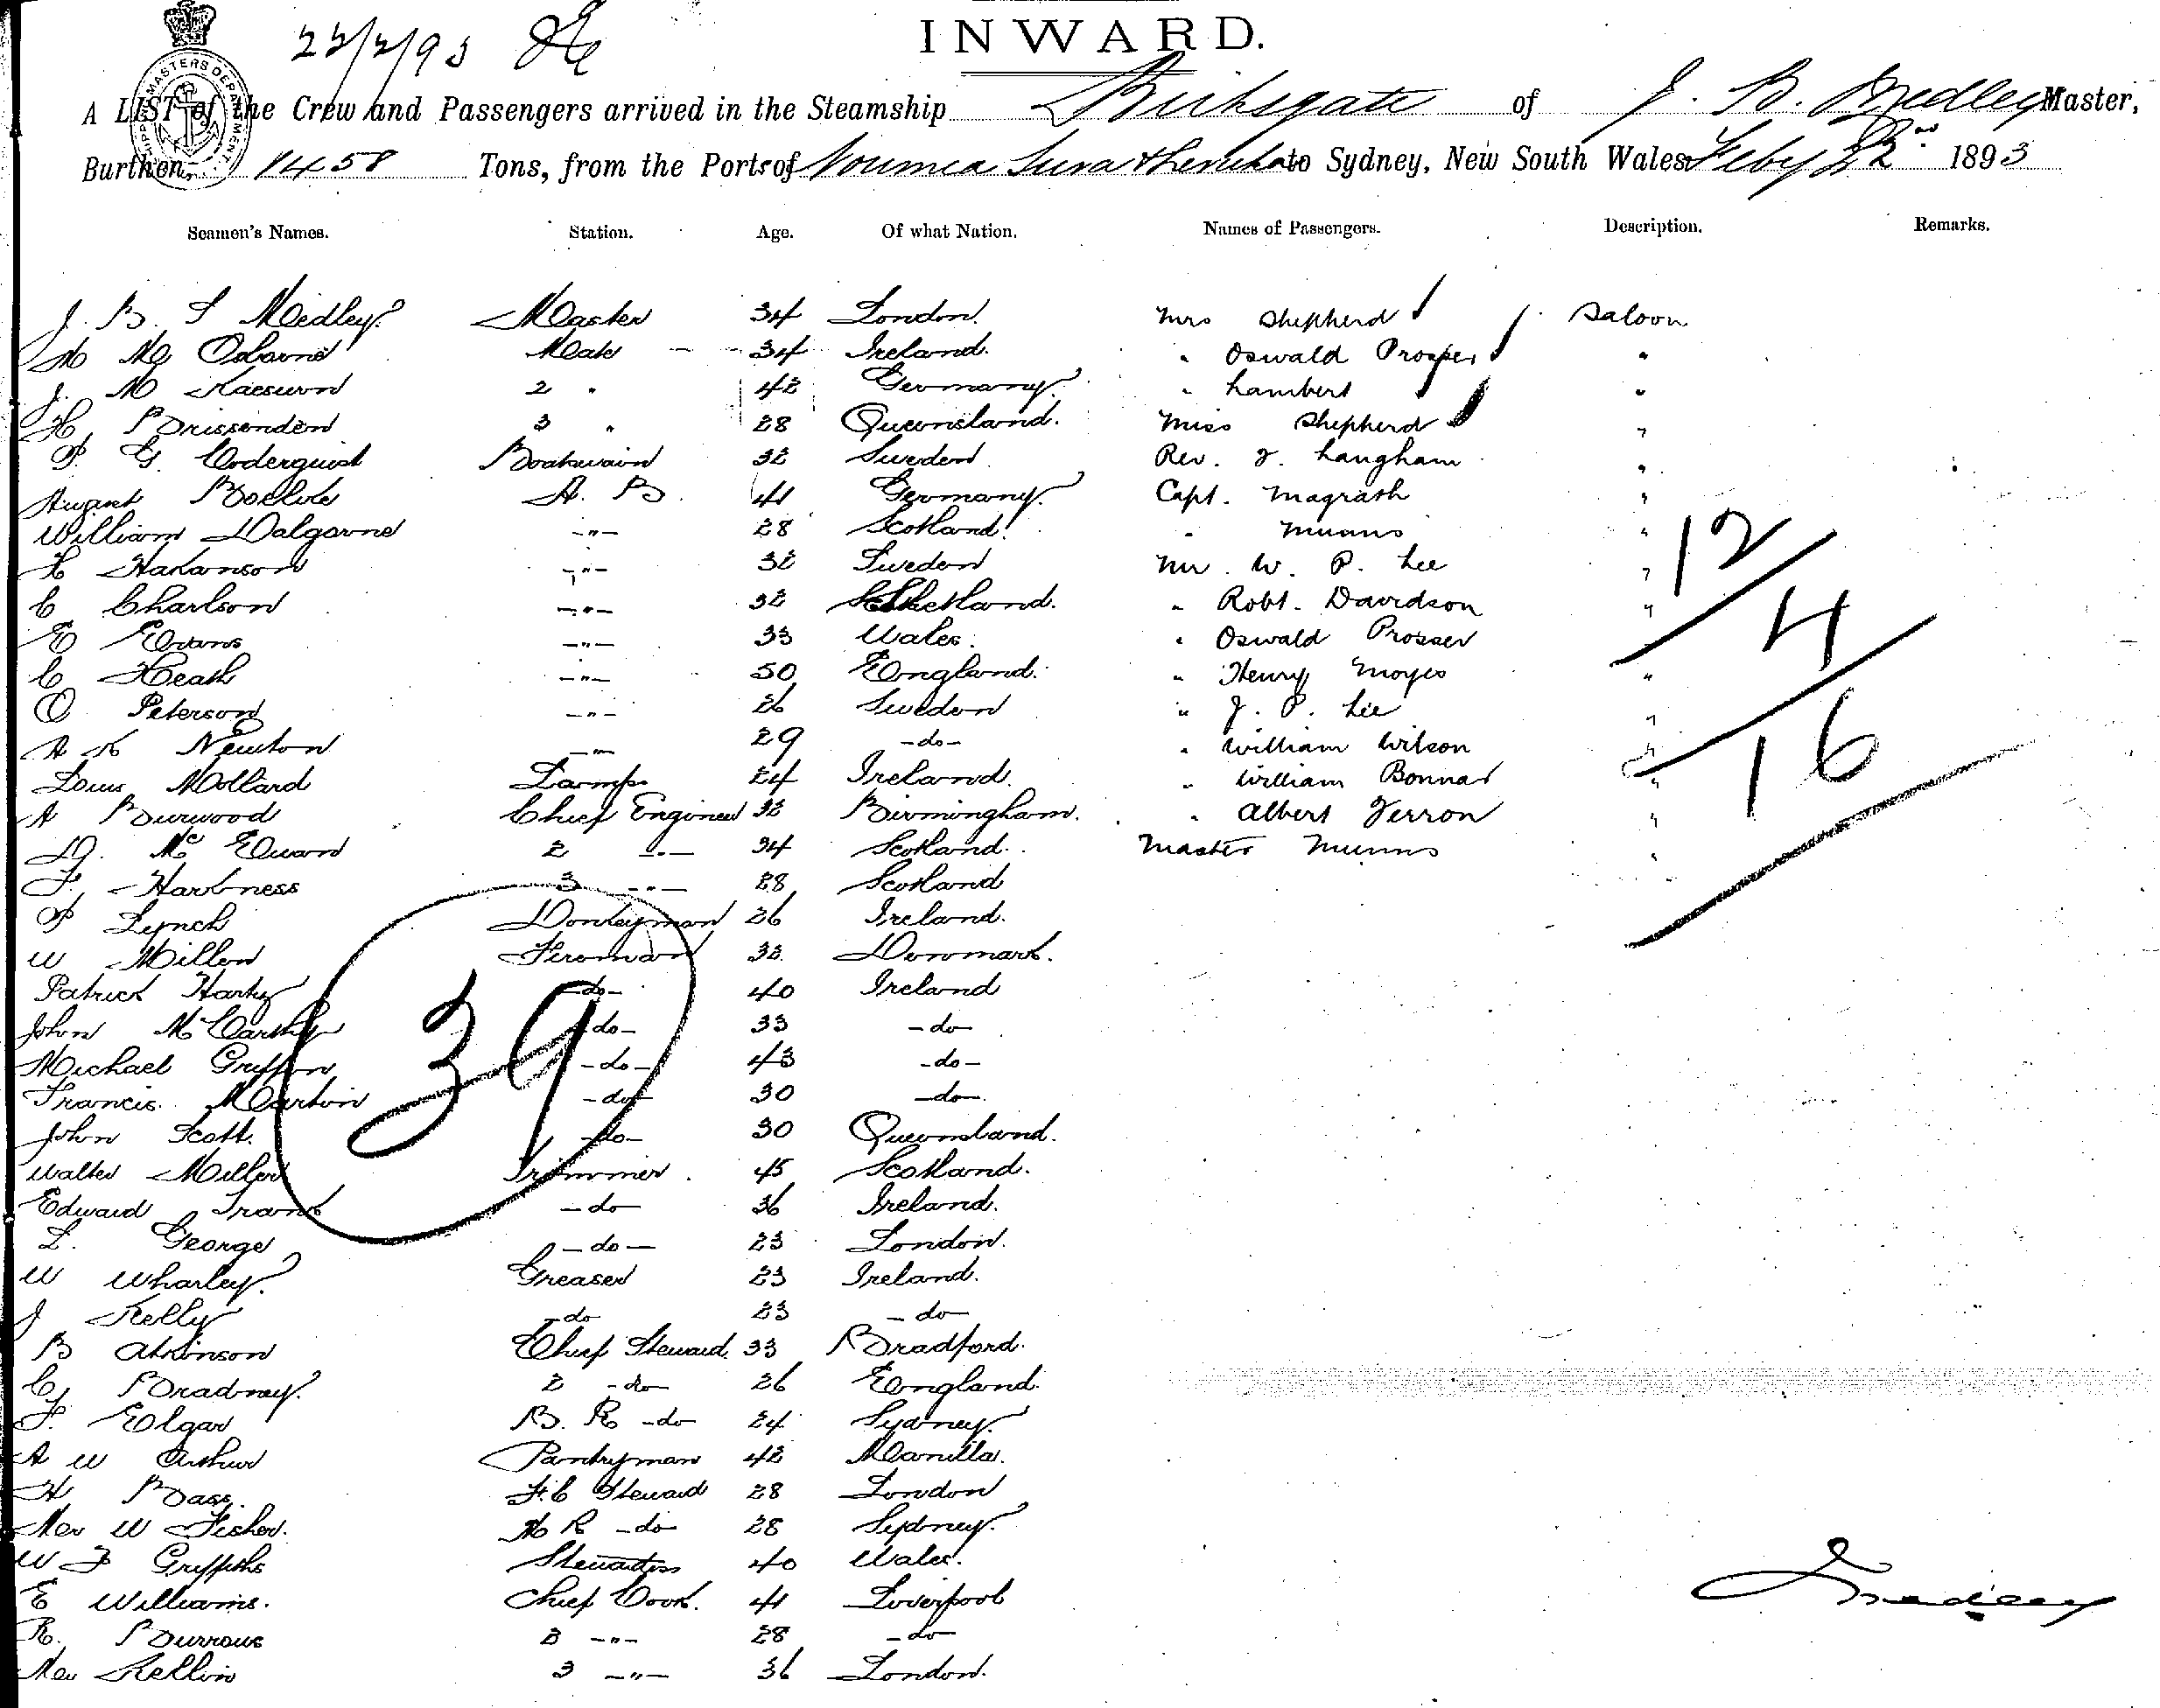 INWARD.
22/2/93
SHIPPING MASTERS DEPARTMENT
A LIST of the Crew and Passengers arrived in the Steamship Birksgate of J. B. Medley Master,
Burthen, 1458 Tons, from the Ports of Noumea Suva & Levuka to Sydney, New South Wales Feby 22nd 1893
Seamen's Names. Station. Age. Of what Nation. Names of Passengers. Description. Remarks.
J. B. S Medley Master 34 London. Mrs Shepherd Saloon
Osborne Mate 34 Ireland. " Oswald Prosser "
J. 2 " 42 Germany. " Lambert "
H Brissenden 3 " 28 Queensland. Miss Shepherd "
P. G. Coderquist Boatswain 32 Sweden Rev. J. Langham "
August A. B. 41 Germany. Capt. Magrath "
William Dalgarno -"- 28 Scotland. " Munns "
Hakanson -"- 32 Sweden Mr. W. P. Lee "
C Charlson -"- 32 Shetland. " Robt. Davidson "
E Evans -"- 33 Wales. " Oswald Prosser
C Heath -"- 50 England. " Henry Moyes "
O Peterson -"- 26 Sweden " J. P. Lee "
Newton -"- 29 -do- " William Wilson "
Louis Mollard Lamps 24 Ireland. " William Bonnar "
A Burwood Chief Engineer 32 Birmingham. " Albert Ferron "
Mc Ewand 2 -"- 34 Scotland. Master Munns "
F. Harkness 3 -"- 28 Scotland
P Lynch Donkeyman 26 Ireland.
W Miller Fireman 32 Denmark.
Patrick Harty -do- 40 Ireland
John McCarthy -do- 33 -do-
Michael Griffin -do- 43 -do-
Francis Martin -do- 30 -do-
John Scott. -do- 30 Queensland.
Walter Miller Trimmer 45 Scotland.
Edward -do 36 Ireland.
L. George -do- 23 London.
W Wharley Greaser 23 Ireland.
J Kelly -do 23 -do-
B Atkinson Chief Steward 33 Bradford.
C Bradney 2 -do- 26 England.
F. Elgar B. R -do- 24 Sydney.
A W Arthur Pantryman 42 Manilla.
H Bass. F.C Steward 28 London
W Fisher. R -do- 28 Sydney.
W J Griffiths Stewardess 40 Wales.
E Williams. Chief Cook. 41 Liverpool
R. Burrows 2 -"- 28 -do-
3 -"- 36 London.
12
4
16
39
Medley